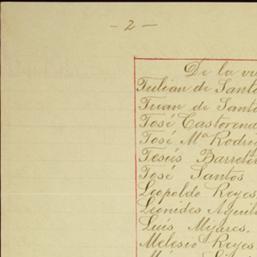 - 2 -
De la vu
Julian de Santo
Juan de Santo
José Castorena
José Mª Rodri
Jesús Barreter
José Santos
Leopoldo Reyes
Leonides Aguil
Luis Mijares.
Melisio Reyes